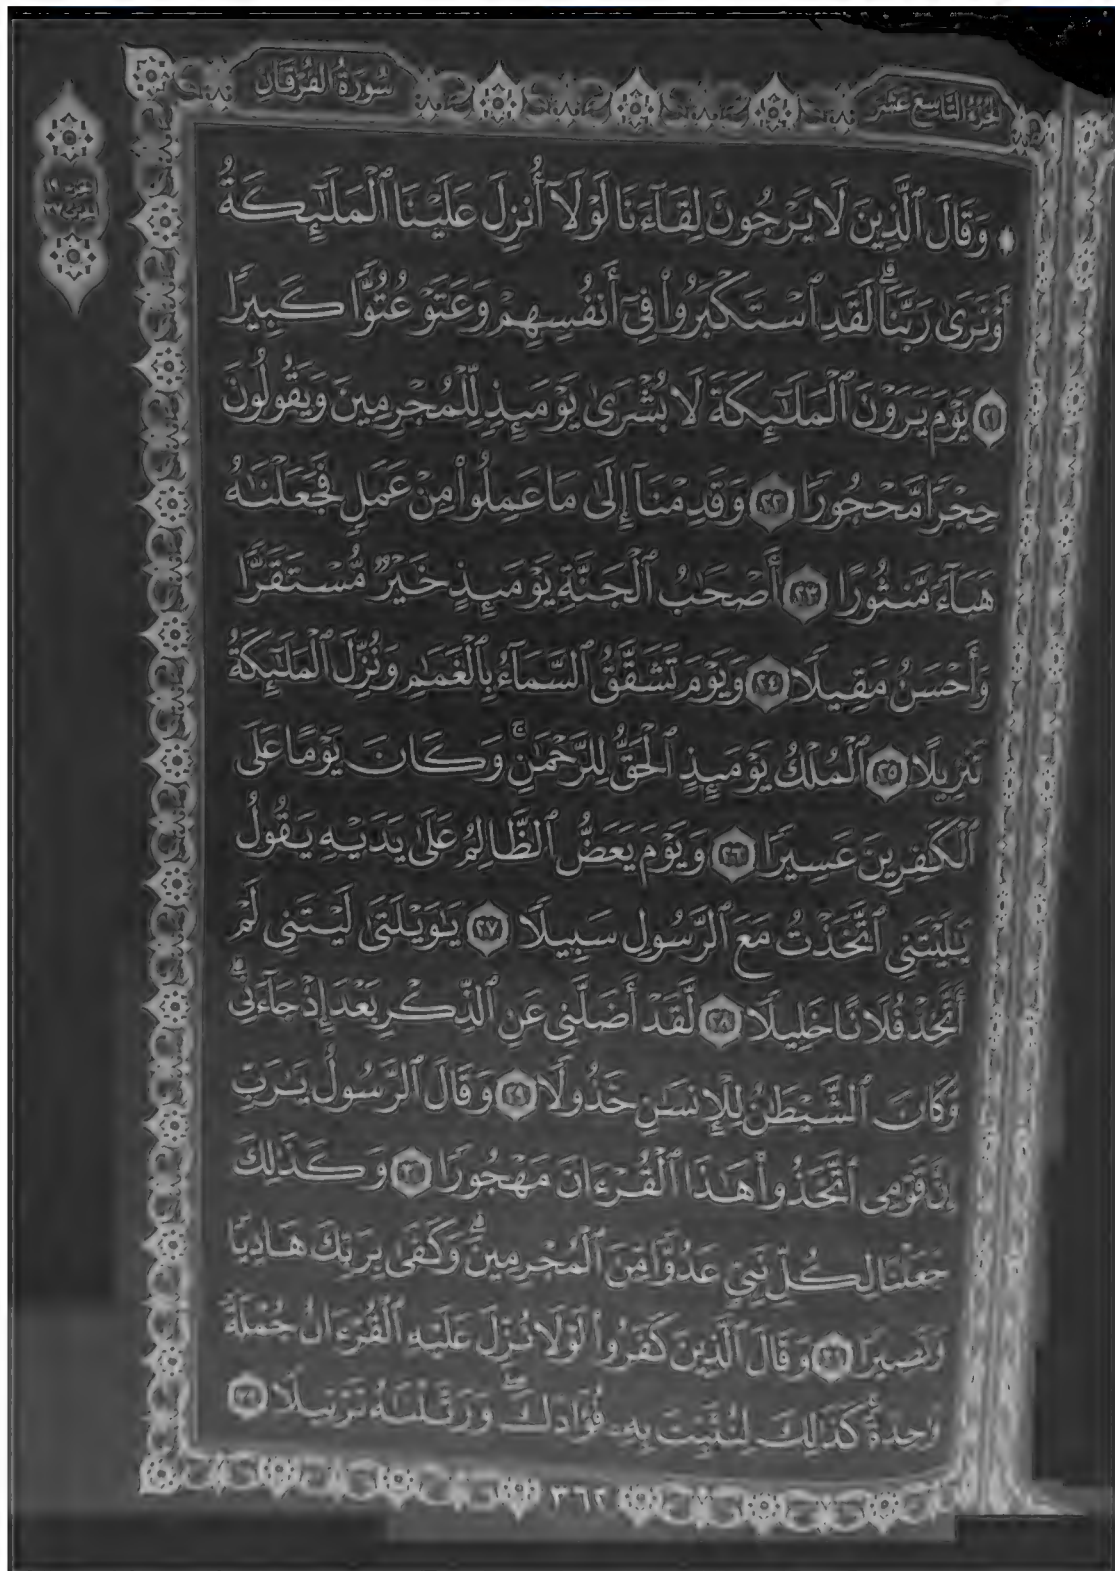 الجزء التاسع عشر
سُورَةُ الفُرْقَانِ
وَقَالَ ٱلَّذِينَ لَا يَرْجُونَ لِقَآءَنَا لَوْلَآ أُنزِلَ عَلَيْنَا ٱلْمَلَـٰٓئِكَةُ
أَوْ نَرَىٰ رَبَّنَا ۗ لَقَدِ ٱسْتَكْبَرُوا۟ فِىٓ أَنفُسِهِمْ وَعَتَوْ عُتُوًّا كَبِيرًا
٢١ يَوْمَ يَرَوْنَ ٱلْمَلَـٰٓئِكَةَ لَا بُشْرَىٰ يَوْمَئِذٍ لِّلْمُجْرِمِينَ وَيَقُولُونَ
حِجْرًا مَّحْجُورًا ٢٢ وَقَدِمْنَآ إِلَىٰ مَا عَمِلُوا۟ مِنْ عَمَلٍ فَجَعَلْنَـٰهُ
هَبَآءً مَّنثُورًا ٢٣ أَصْحَـٰبُ ٱلْجَنَّةِ يَوْمَئِذٍ خَيْرٌ مُّسْتَقَرًّا
وَأَحْسَنُ مَقِيلًا ٢٤ وَيَوْمَ تَشَقَّقُ ٱلسَّمَآءُ بِٱلْغَمَـٰمِ وَنُزِّلَ ٱلْمَلَـٰٓئِكَةُ
تَنزِيلًا ٢٥ ٱلْمُلْكُ يَوْمَئِذٍ ٱلْحَقُّ لِلرَّحْمَـٰنِ ۚ وَكَانَ يَوْمًا عَلَى
ٱلْكَـٰفِرِينَ عَسِيرًا ٢٦ وَيَوْمَ يَعَضُّ ٱلظَّالِمُ عَلَىٰ يَدَيْهِ يَقُولُ
يَـٰلَيْتَنِى ٱتَّخَذْتُ مَعَ ٱلرَّسُولِ سَبِيلًا ٢٧ يَـٰوَيْلَتَىٰ لَيْتَنِى لَمْ
أَتَّخِذْ فُلَانًا خَلِيلًا ٢٨ لَّقَدْ أَضَلَّنِى عَنِ ٱلذِّكْرِ بَعْدَ إِذْ جَآءَنِى ۗ
وَكَانَ ٱلشَّيْطَـٰنُ لِلْإِنسَـٰنِ خَذُولًا ٢٩ وَقَالَ ٱلرَّسُولُ يَـٰرَبِّ
إِنَّ قَوْمِى ٱتَّخَذُوا۟ هَـٰذَا ٱلْقُرْءَانَ مَهْجُورًا ٣٠ وَكَذَٰلِكَ
جَعَلْنَا لِكُلِّ نَبِىٍّ عَدُوًّا مِّنَ ٱلْمُجْرِمِينَ ۗ وَكَفَىٰ بِرَبِّكَ هَادِيًا
وَنَصِيرًا ٣١ وَقَالَ ٱلَّذِينَ كَفَرُوا۟ لَوْلَا نُزِّلَ عَلَيْهِ ٱلْقُرْءَانُ جُمْلَةً
وَٰحِدَةً ۚ كَذَٰلِكَ لِنُثَبِّتَ بِهِۦ فُؤَادَكَ ۖ وَرَتَّلْنَـٰهُ تَرْتِيلًا ٣٢
٣٦٢